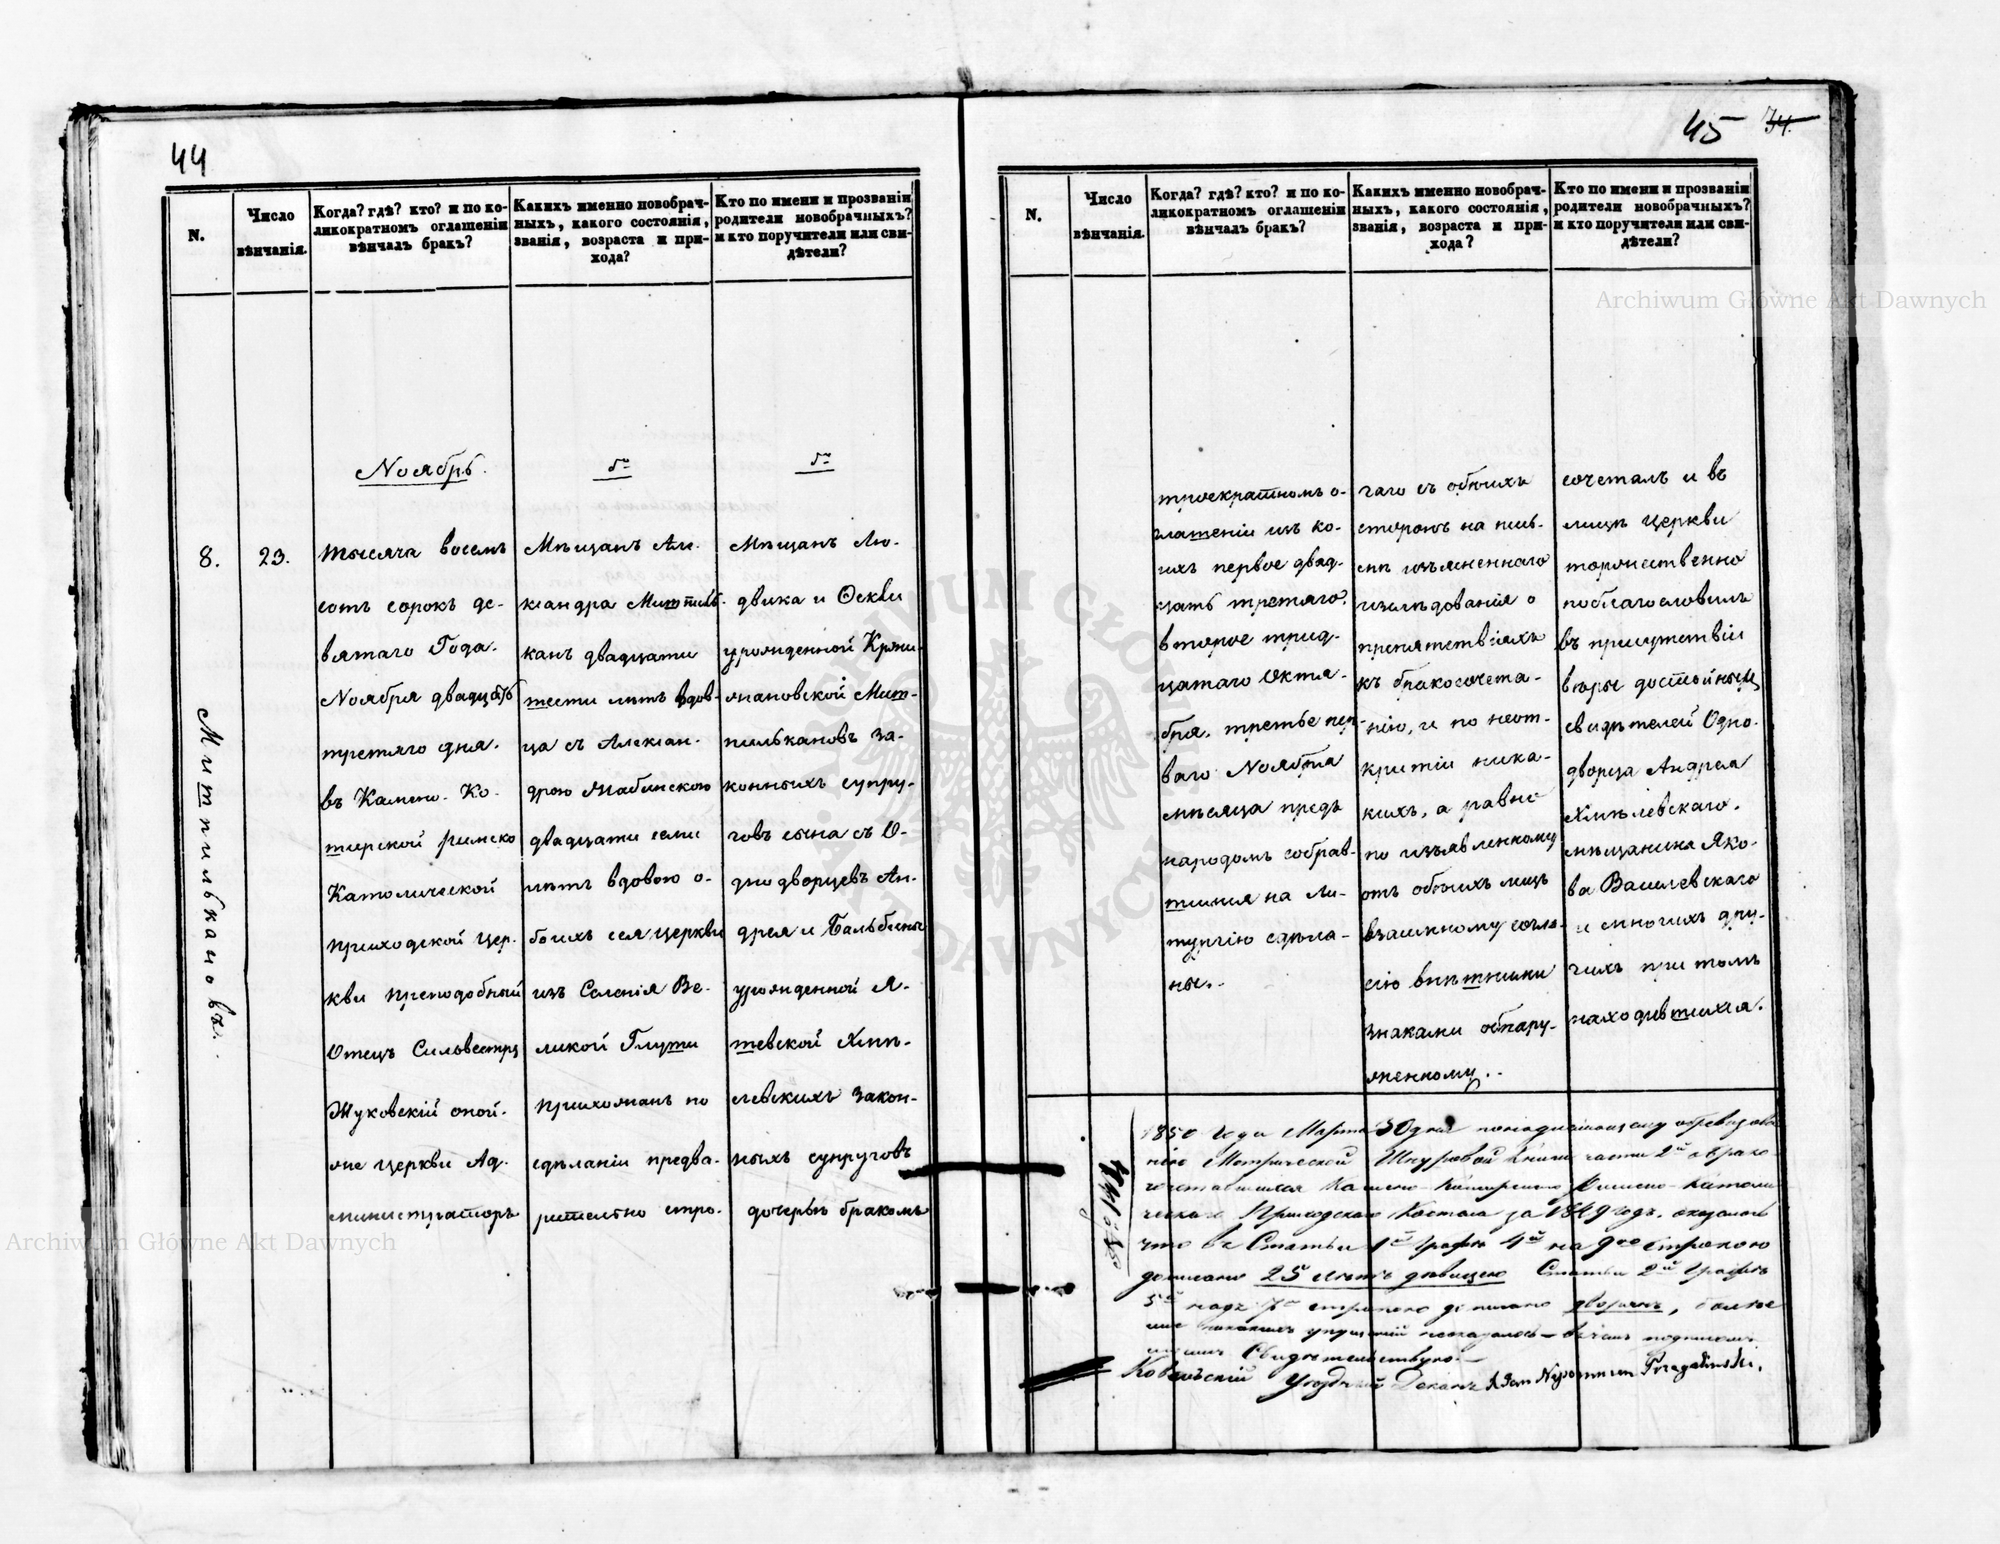 44
N.
Число вѣнчанія.
Когда? гдѣ? кто? и по ко-
ликократномъ оглашеніи
вѣнчалъ бракъ?
Какихъ именно новобрач-
ныхъ, какого состоянія,
званія, возраста и при-
хода?
Кто по имени и прозваніи
родители новобрачныхъ?
и кто поручители или сви-
дѣтели?
Ноябрь.
8.
23.
Митпилькановъ.
тысяча восемь
сотъ сорокъ де-
вятаго Года.
Ноября двадцать
третяго дня.
въ Камено-Ко-
ширской римско
Католической
приходской цер-
кви преподобный
Отецъ Сильвестръ
Жуковскій оной-
же церкви Ад-
министраторъ
Мѣщанъ Але-
ксандра Митпиль-
канъ двадцати
шести лѣтъ вдов-
ца съ Алексан-
дрою Жабинскою
двадцати семи
лѣтъ вдовою о-
боихъ сея церкви
изъ Селенія Ве-
ликой Глуши
прихожанъ по
сдѣланіи предва-
рительно стро-
Мѣщанъ Лю-
двика и Өекли
урожденной Кржи-
жановской Мит-
пилькановъ за-
конныхъ супру-
говъ сына съ О-
днодворцевъ Ан-
дрея и Бальбины
урожденной Я-
шевской Хмѣ-
левскихъ закон-
ныхъ супруговъ
дочерью бракомъ
45 34.
N.
Число вѣнчанія.
Когда? гдѣ? кто? и по ко-
ликократномъ оглашеніи
вѣнчалъ бракъ?
Какихъ именно новобрач-
ныхъ, какого состоянія,
званія, возраста и при-
хода?
Кто по имени и прозваніи
родители новобрачныхъ?
и кто поручители или сви-
дѣтели?
троекратномъ о-
глашеніи изъ ко-
ихъ первое двад-
цать третяго.
второе трид-
цатаго Октя-
бря. третье пер-
ваго Ноября
мѣсяца предъ
народомъ собрав-
шимся на Ли-
тургію сдѣла-
ны.
гаго съ обоихъ
сторонъ на пись-
мѣ изъясненнаго
изслѣдованія о
препятствіяхъ
къ бракосочета-
нію, и по неот-
критіи ника-
кихъ, а равно
по изъявленному
отъ обоихъ лицъ
взаимному согла-
сію внѣшними
знаками обнару-
женному.
сочеталъ и въ
лицѣ церкви
торжественно
поблагословилъ
въ присутствіи
вѣры достойныхъ
свидѣтелей Одно-
дворца Андрея
Хмѣлевскаго.
мѣщанина Яко-
ва Василевскаго
и многихъ дру-
гихъ при томъ
находившихся.
1850 года Марта 30 дня
нію Метрической Шнуровой Книги части 2й о брако-
сочетавшихся Камено-Коширскаго Римско-Католи-
ческаго Приходскаго Костела за 1849 годъ. оказалось
что въ Статьи 1й Графы 4й на 9ою строкою
дописано 25 лѣтъ дѣвицею Статьи 2й Графы
5й надъ 7ю строкою дописано дворянъ, болѣе
Свидѣтельствую.
Ковельскій Уѣздный Деканъ X Jan Nepomucen
Archiwum Główne Akt Dawnych
Archiwum Główne Akt Dawnych
ARCHIWUM GŁÓWNE AKT DAWNYCH